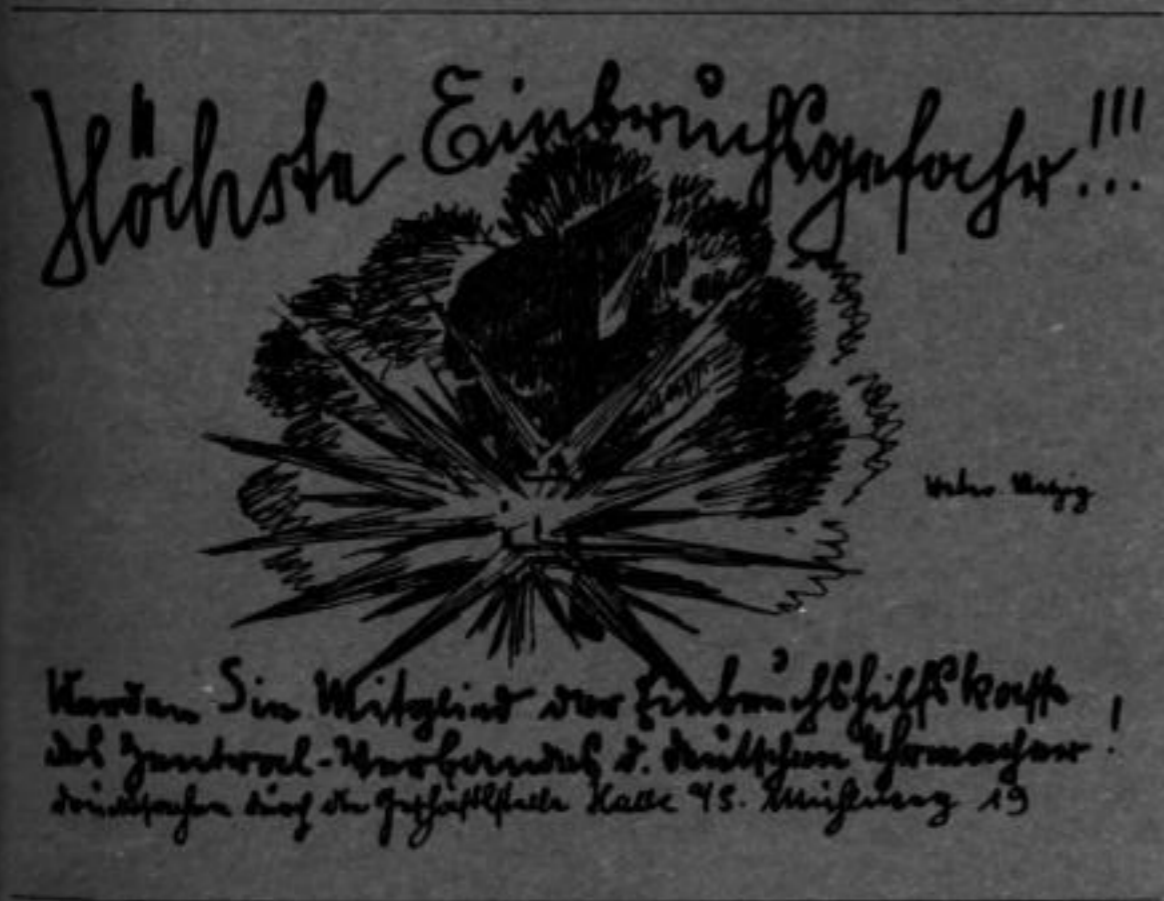 Höchste Einbruchsgefahr!!!
Werden Sie Mitglied der Einbruchshilfskasse
des Zentral-Verbandes d. Deutschen Uhrmacher!
Drucksachen durch die Geschäftsstelle Halle a/S. Mühlweg 19